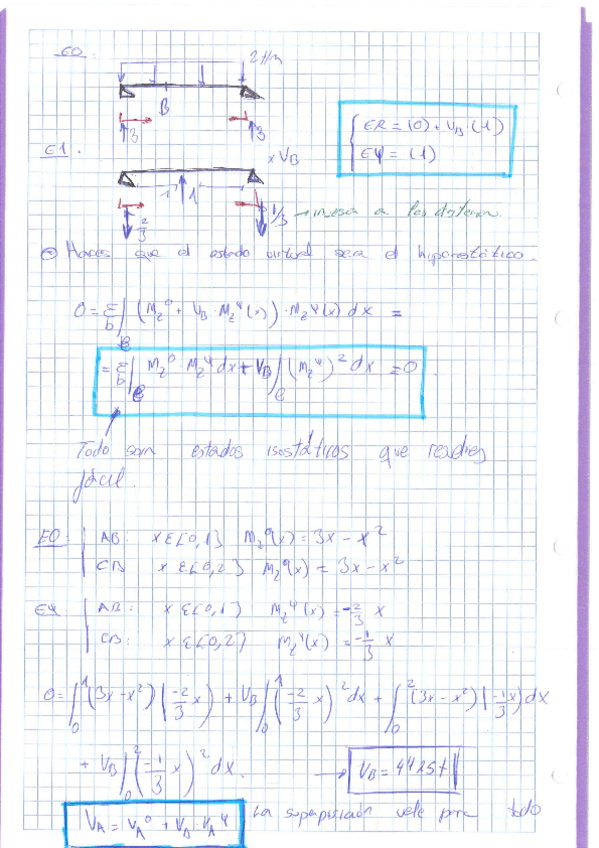 EO.
2 t/m
B
3 3
{ ER = (0) + V_B · (1)
{ EΨ = (1)
E1.
× V_B
1 1
2/3 1/3 → inversa a les distan.
⊖ Haces que el estado virtual sea el hiperestático.
0 = Σ_b ∫_e (M_z^0 + V_B · M_z^Ψ(x)) · M_z^Ψ(x) dx =
= Σ_b ∫_e M_z^0 · M_z^Ψ dx + V_B ∫_e (M_z^Ψ)^2 dx = 0.
Todo som estados isostáticos que
fácil.
EO: { AB: x ∈ [0,1] M_z^0(x) = 3x - x^2
{ CB x ∈ [0,2] M_z^0(x) = 3x - x^2
EΨ { AB: x ∈ [0,1] M_z^Ψ(x) = -2/3 x
{ CB: x ∈ [0,2] M_z^Ψ(x) = -1/3 x
0 = ∫_0^1 (3x - x^2) (-2/3 x) + V_B ∫_0^1 (-2/3 x)^2 dx + ∫_0^2 (3x - x^2) (-1/3 x) dx
+ V_B ∫_0^2 (-1/3 x)^2 dx. → V_B = 4'125 t
V_A = V_A^0 + V_B · V_A^Ψ La superposición vale para todo